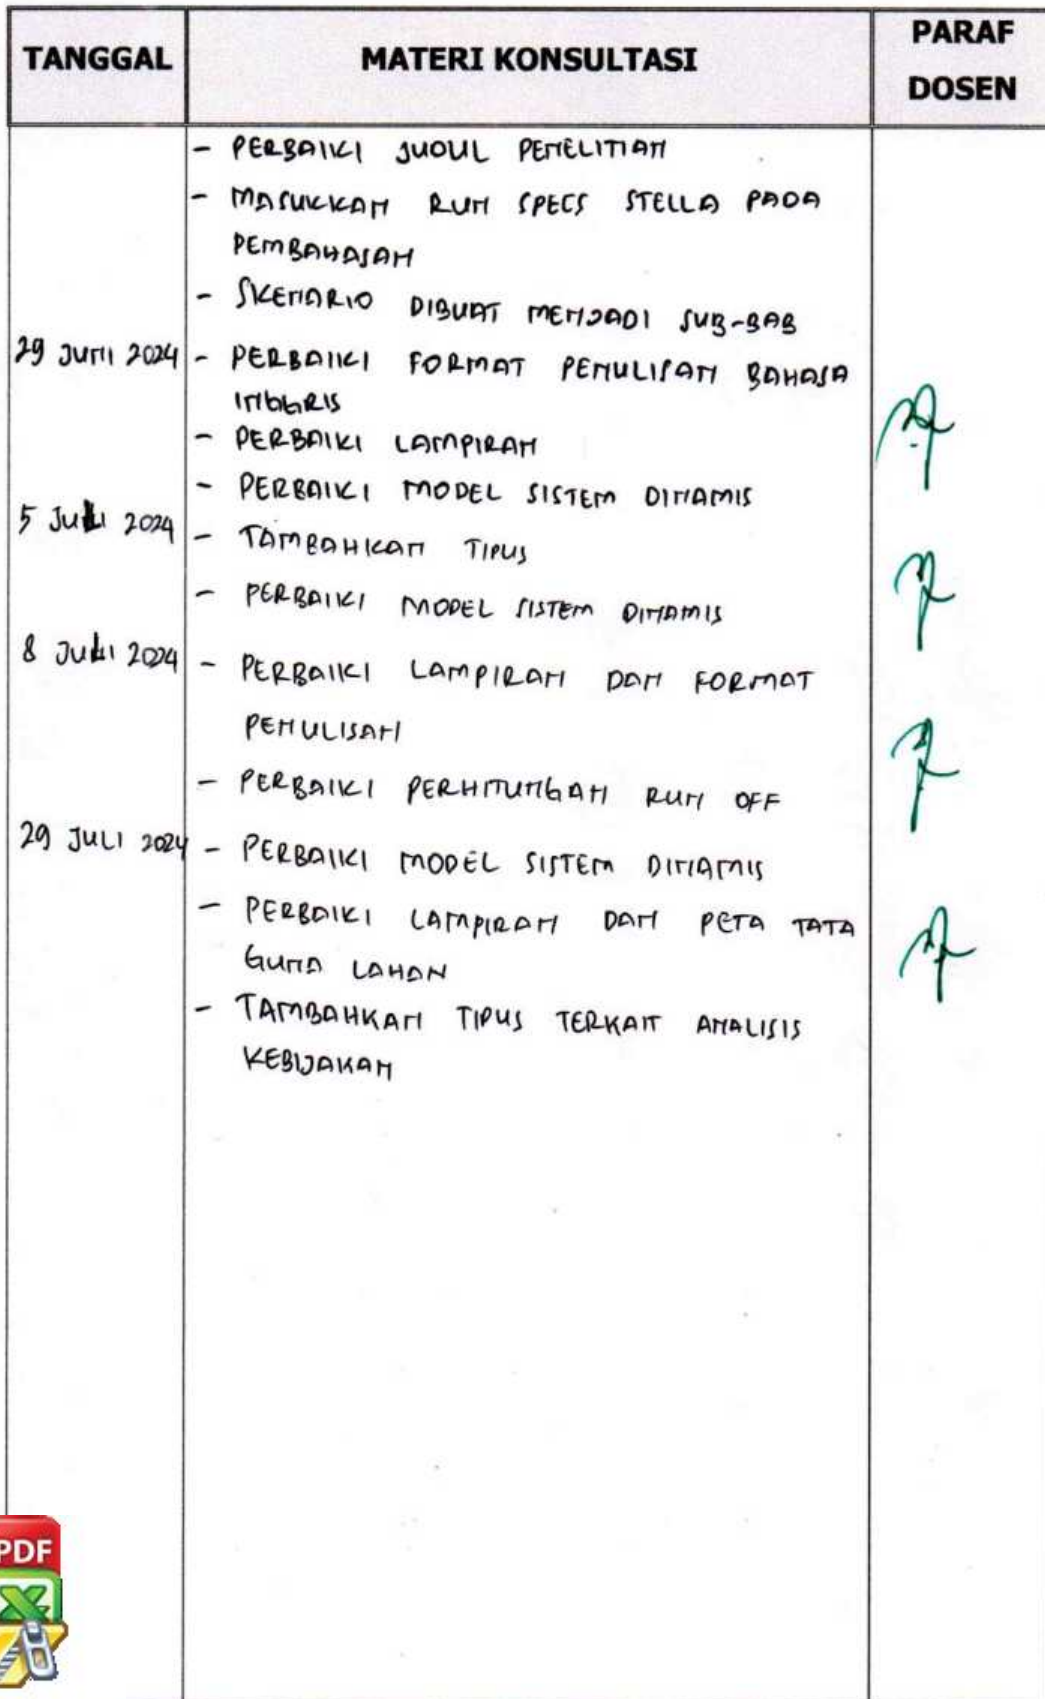 TANGGAL MATERI KONSULTASI PARAF DOSEN
- PERBAIKI JUDUL PENELITIAN
- MASUKKAN RUN SPECS STELLA PADA
PEMBAHASAN
- SKENARIO DIBUAT MENJADI SUB-BAB
29 JUNI 2024 - PERBAIKI FORMAT PENULISAN BAHASA
INGGRIS
- PERBAIKI LAMPIRAN
- PERBAIKI MODEL SISTEM DINAMIS
5 JULI 2024 - TAMBAHKAN TIPUS
- PERBAIKI MODEL SISTEM DINAMIS
8 JULI 2024 - PERBAIKI LAMPIRAN DAN FORMAT
PENULISAN
- PERBAIKI PERHITUNGAN RUN OFF
29 JULI 2024 - PERBAIKI MODEL SISTEM DINAMIS
- PERBAIKI LAMPIRAN DAN PETA TATA
GUNA LAHAN
- TAMBAHKAN TIPUS TERKAIT ANALISIS
KEBIJAKAN
PDF